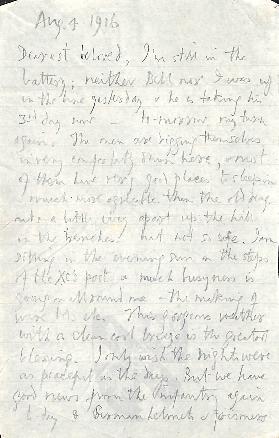 Aug. 4 1916
Dearest beloved, I'm still in the
battery; neither Bell nor I was up
in the line yesterday & he is taking his
3rd day now — to-morrow my turn
again. The men are rigging themselves
in very comfortably down here, & most
of them have very good places to sleep in
much more agreeable than the old dug
outs a little way apart up the hill
in the trenches but not so safe. I am
sitting in the evening sun on the steps
of the post & much busyness is
going on all round me — the making of
This gorgeous weather
with a clean cool breeze is the greatest
blessing. I only wish the nights were
as peaceful as the days. But we have
good news from the Infantry again
to day & German helmets & prisoners